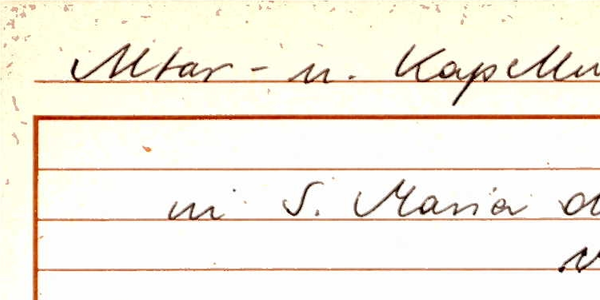 Altar- u. Kapellen
in S. Maria d
v